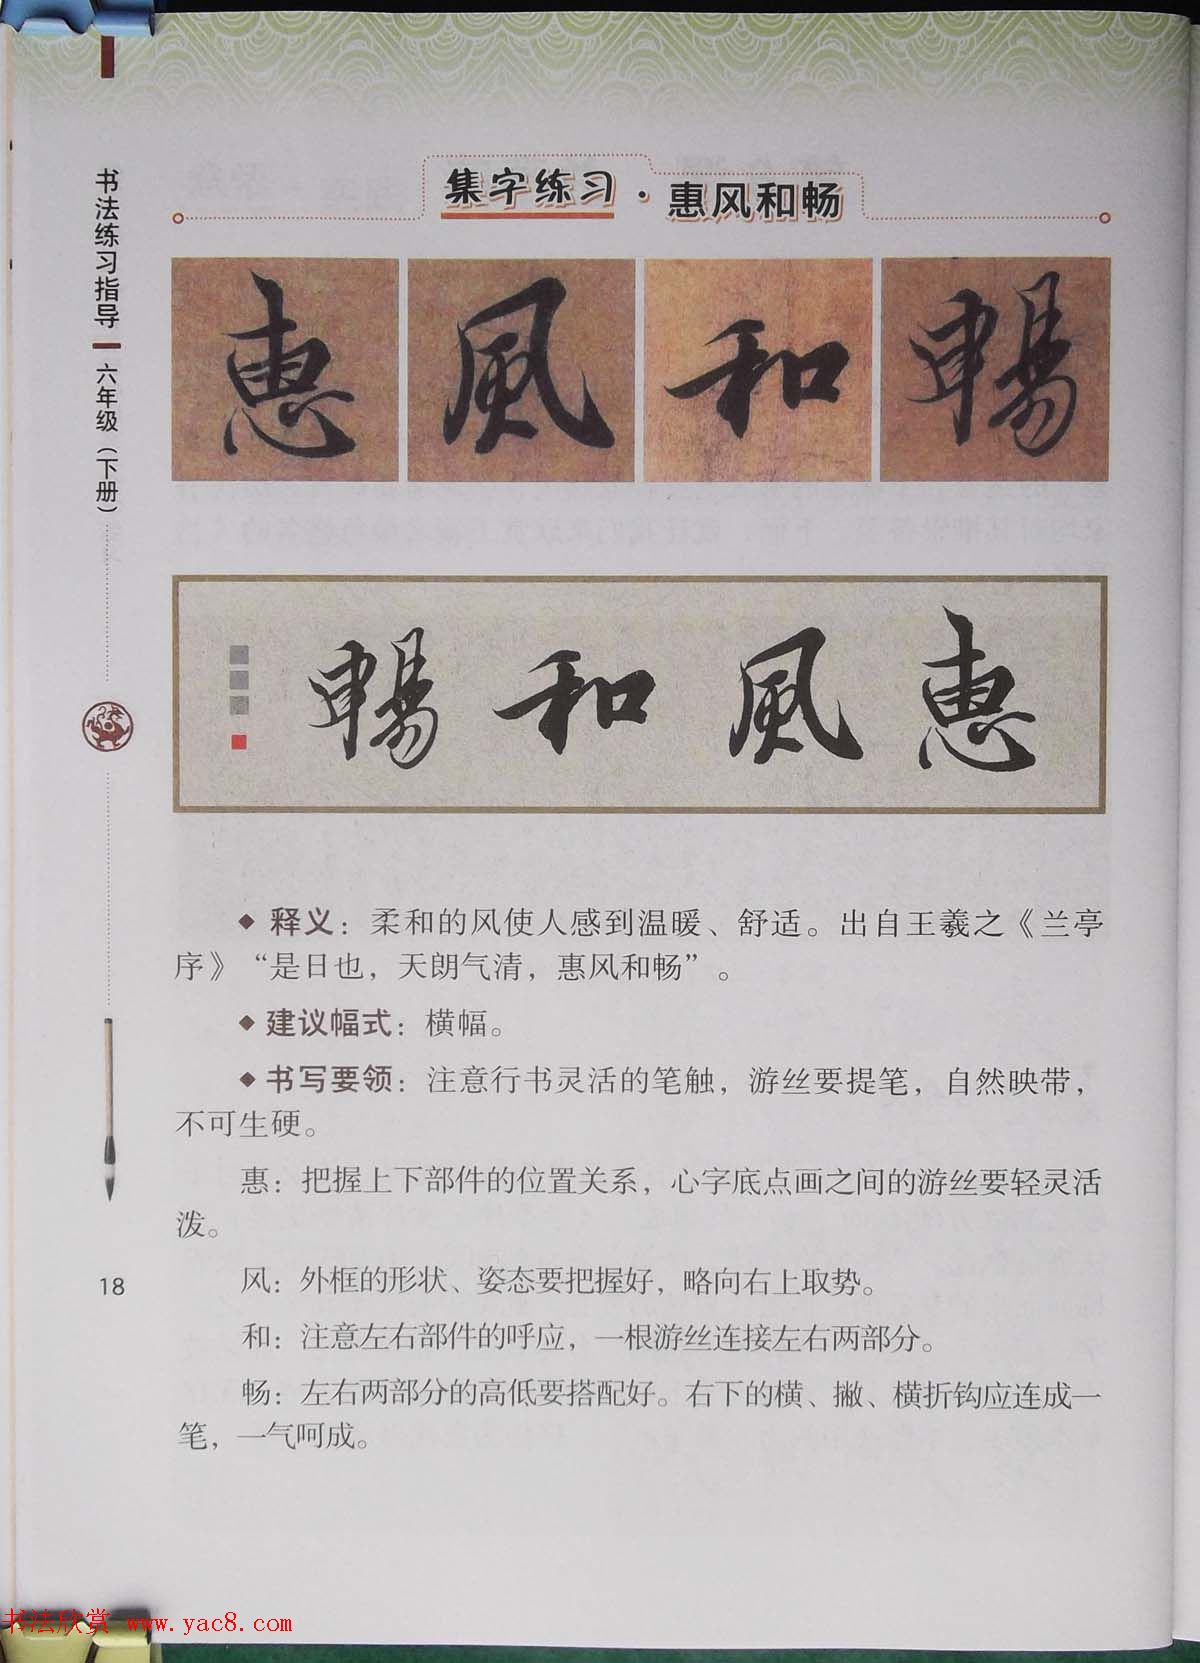 书法练习指导
六年级（下册）
集字练习·惠风和畅
惠 風 和 暢
暢 和 風 惠
◆ 释义：柔和的风使人感到温暖、舒适。出自王羲之《兰亭
序》“是日也，天朗气清，惠风和畅”。
◆ 建议幅式：横幅。
◆ 书写要领：注意行书灵活的笔触，游丝要提笔，自然映带，
不可生硬。
惠：把握上下部件的位置关系，心字底点画之间的游丝要轻灵活
泼。
风：外框的形状、姿态要把握好，略向右上取势。
和：注意左右部件的呼应，一根游丝连接左右两部分。
畅：左右两部分的高低要搭配好。右下的横、撇、横折钩应连成一
笔，一气呵成。
18
书法欣赏 www.yac8.com